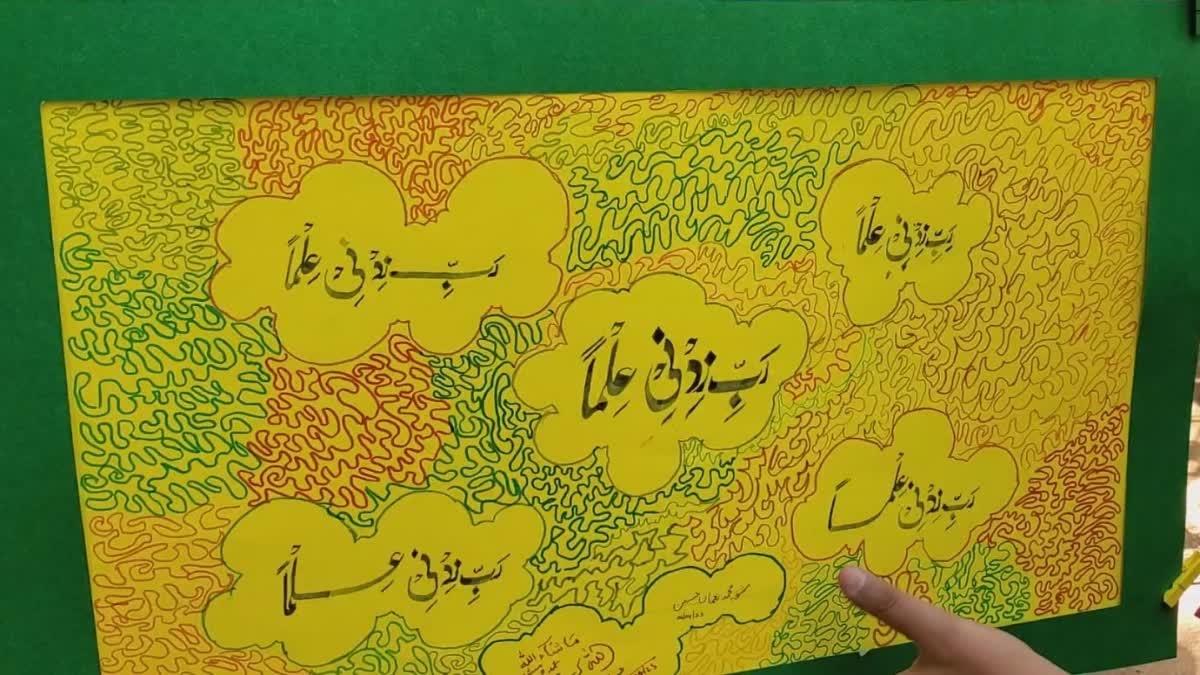 رَبِّ زِدْنِي عِلْمًا
رَبِّ زِدْنِي عِلْمًا
رَبِّ زِدْنِي عِلْمًا
رَبِّ زِدْنِي عِلْمًا
رَبِّ زِدْنِي عِلْمًا
ما شاء الله